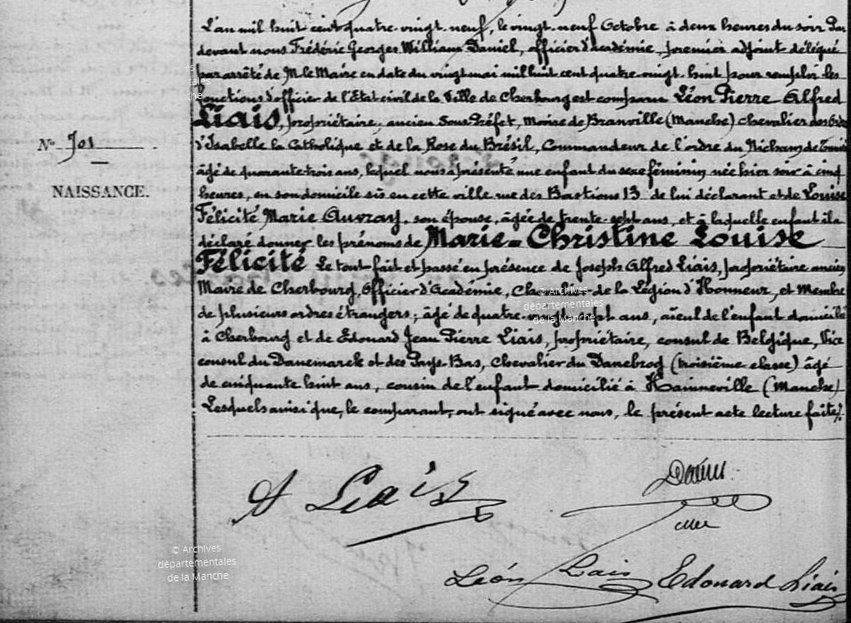 L'an mil huit cent quatre-vingt-neuf, le vingt-neuf Octobre à deux heures du soir Par
devant nous Frédéric Georges William Daniel, officier d'académie, premier adjoint délégué
par arrêté de M. le Maire en date du vingt mai mil huit cent quatre-vingt-huit pour remplir les
fonctions d'officier de l'Etat civil de la Ville de Cherbourg est comparu Léon Pierre Alfred
Liais, propriétaire, ancien Sous Préfet, Maire de Branville (Manche) Chevalier des Ordres
d'Isabelle la Catholique et de la Rose du Brésil, Commandeur de l'ordre du Nicham de Tunis
âgé de quarante trois ans, lequel nous a présenté une enfant du sexe féminin née hier soir à cinq
heures, en son domicile sis en cette ville rue des Bastions 13 de lui déclarant et de Louise
Félicité Marie Auvray, son épouse, âgée de trente-sept ans, et à laquelle enfant il a
déclaré donner les prénoms de Marie-Christine Louise
Félicité Le tout fait et passé en présence de Joseph Alfred Liais, propriétaire ancien
Maire de Cherbourg, Officier d'Académie, Chevalier de la Légion d'Honneur, et Membre
de plusieurs ordres étrangers, âgé de quatre-vingt-sept ans, aïeul de l'enfant domicilié
à Cherbourg et de Edouard Jean Pierre Liais, propriétaire, consul de Belgique, Vice
consul du Danemarck et des Pays-Bas, Chevalier du Danebrog (troisième classe) âgé
de cinquante huit ans, cousin de l'enfant domicilié à Hainneville (Manche)
Lesquels ainsi que, le comparant, ont signé avec nous, le présent acte lecture faite.
N° 701
NAISSANCE.
© Archives
départementales
de la Manche
A Liais
Léon Liais Edouard Liais
© Archives
départementales
de la Manche